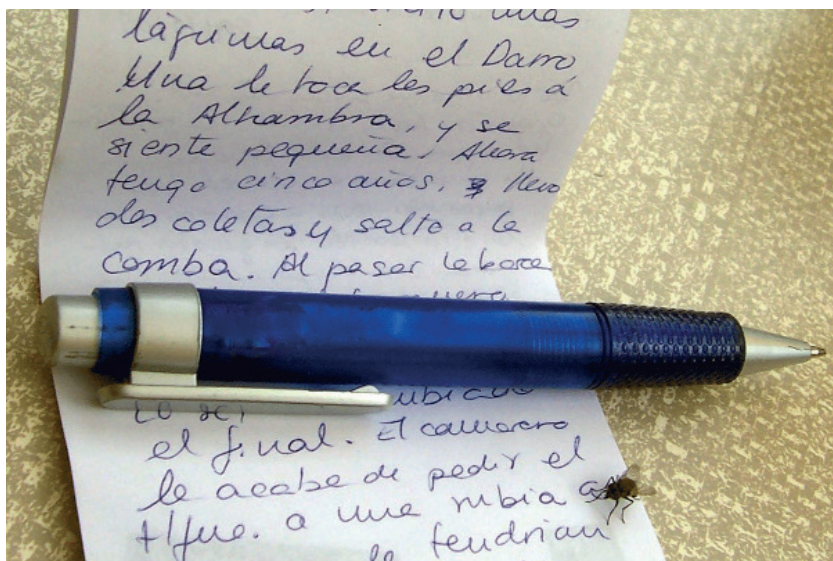 unas
lágrimas en el Darro
Una le toca los pies a
la Alhambra, y se
siente pequeña. Ahora
tengo cinco años, llevo
dos coletas y salto a la
comba. Al pasar la barca
el final. El camarero
le acaba de pedir el
tlfno. a una rubia
le tendrían